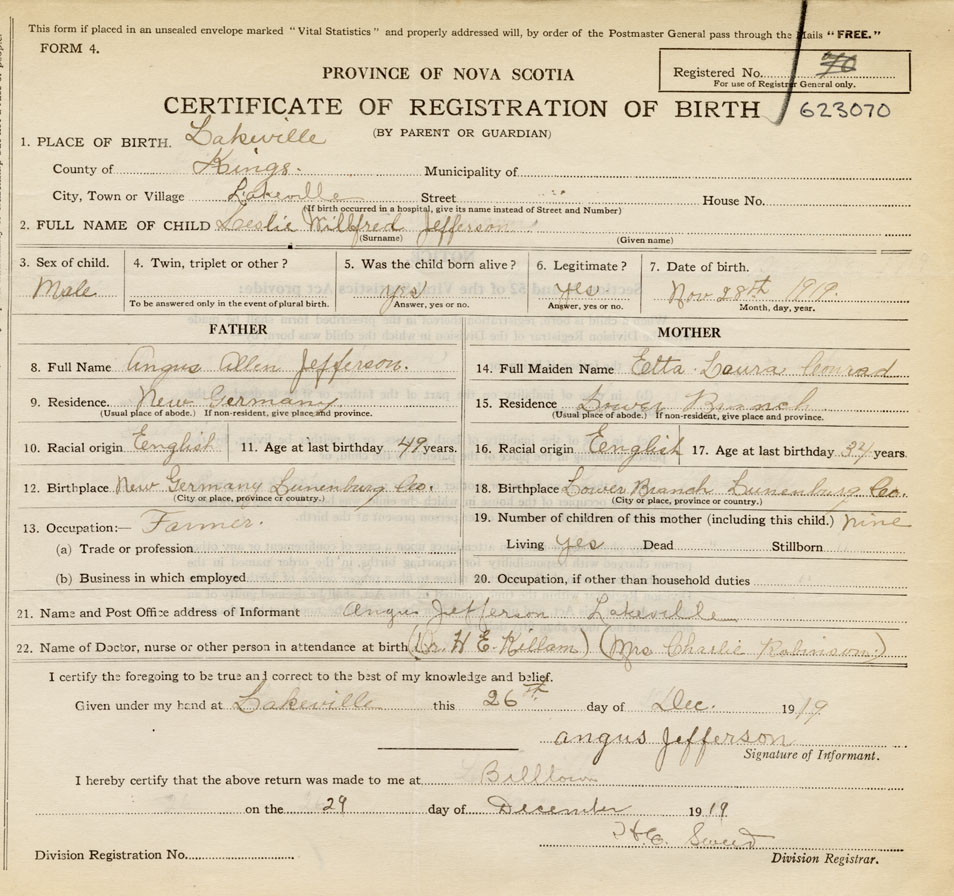 This form if placed in an unsealed envelope marked "Vital Statistics" and properly addressed will, by order of the Postmaster General pass through the Mails "FREE."
FORM 4.
PROVINCE OF NOVA SCOTIA
Registered No. 70
For use of Registrar General only.
CERTIFICATE OF REGISTRATION OF BIRTH 623070
(BY PARENT OR GUARDIAN)
1. PLACE OF BIRTH. Lakeville
County of Kings. Municipality of
City, Town or Village Lakeville Street House No.
(If birth occurred in a hospital, give its name instead of Street and Number)
2. FULL NAME OF CHILD Leslie Willfred Jefferson
(Surname) (Given name)
3. Sex of child. 4. Twin, triplet or other? 5. Was the child born alive? 6. Legitimate? 7. Date of birth.
Male yes yes Nov 28th 1919.
To be answered only in the event of plural birth. Answer, yes or no. Answer, yes or no. Month, day, year.
FATHER MOTHER
8. Full Name Angus Allen Jefferson. 14. Full Maiden Name Etta Laura Conrad
9. Residence. New Germany 15. Residence Lower Branch
(Usual place of abode.) If non-resident, give place and province. (Usual place of abode.) If non-resident, give place and province.
10. Racial origin Eenglish 11. Age at last birthday 49 years. 16. Racial origin Eenglish 17. Age at last birthday years.
12. Birthplace New Germany Lunenburg Co. 18. Birthplace Lower Branch Lunenburg Co.
(City or place, province or country.) (City or place, province or country.)
13. Occupation:— Farmer. 19. Number of children of this mother (including this child.) nine
(a) Trade or profession Living yes Dead Stillborn
(b) Business in which employed 20. Occupation, if other than household duties
21. Name and Post Office address of Informant Angus Jefferson Lakeville
22. Name of Doctor, nurse or other person in attendance at birth (Dr. H E. Killam) (Mrs Charlie Robinson.)
I certify the foregoing to be true and correct to the best of my knowledge and belief.
Given under my hand at Lakeville this 26th day of Dec. 1919
Angus Jefferson
Signature of Informant.
I hereby certify that the above return was made to me at Billtown
on the 29 day of December 1919
Division Registration No. Division Registrar.